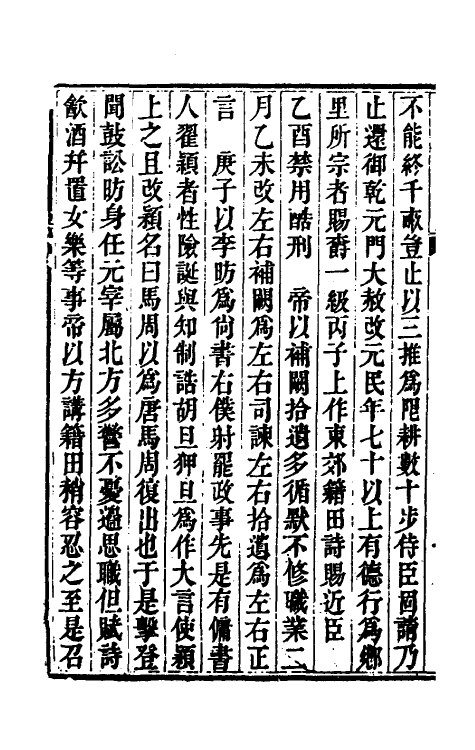 不能終千畝豈止以三推爲限耕數十步侍臣固請乃
止還御乾元門大赦改元民年七十以上有德行爲鄉
里所宗者賜爵一級丙子上作東郊籍田詩賜近臣
乙酉禁用酷刑　帝以補闕拾遺多循默不修職業二
月乙未改左右補闕爲左右司諫左右拾遺爲左右正
言　庚子以李昉爲尚書右僕射罷政事先是有傭書
人翟穎者性險誕與知制誥胡旦狎旦爲作大言使穎
上之且改穎名曰馬周以爲唐馬周復出也于是擊登
聞鼓訟昉身任元宰屬北方多警不憂邊思職但賦詩
飲酒幷置女樂等事帝以方講籍田稍容忍之至是召